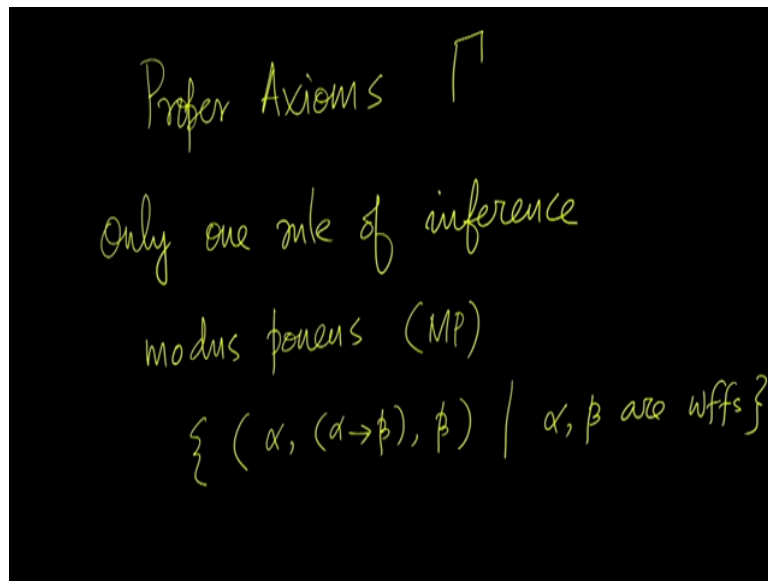 Proper Axioms Γ
only one rule of inference
modus ponens (MP)
{ (α, (α→β), β) | α, β are wffs}